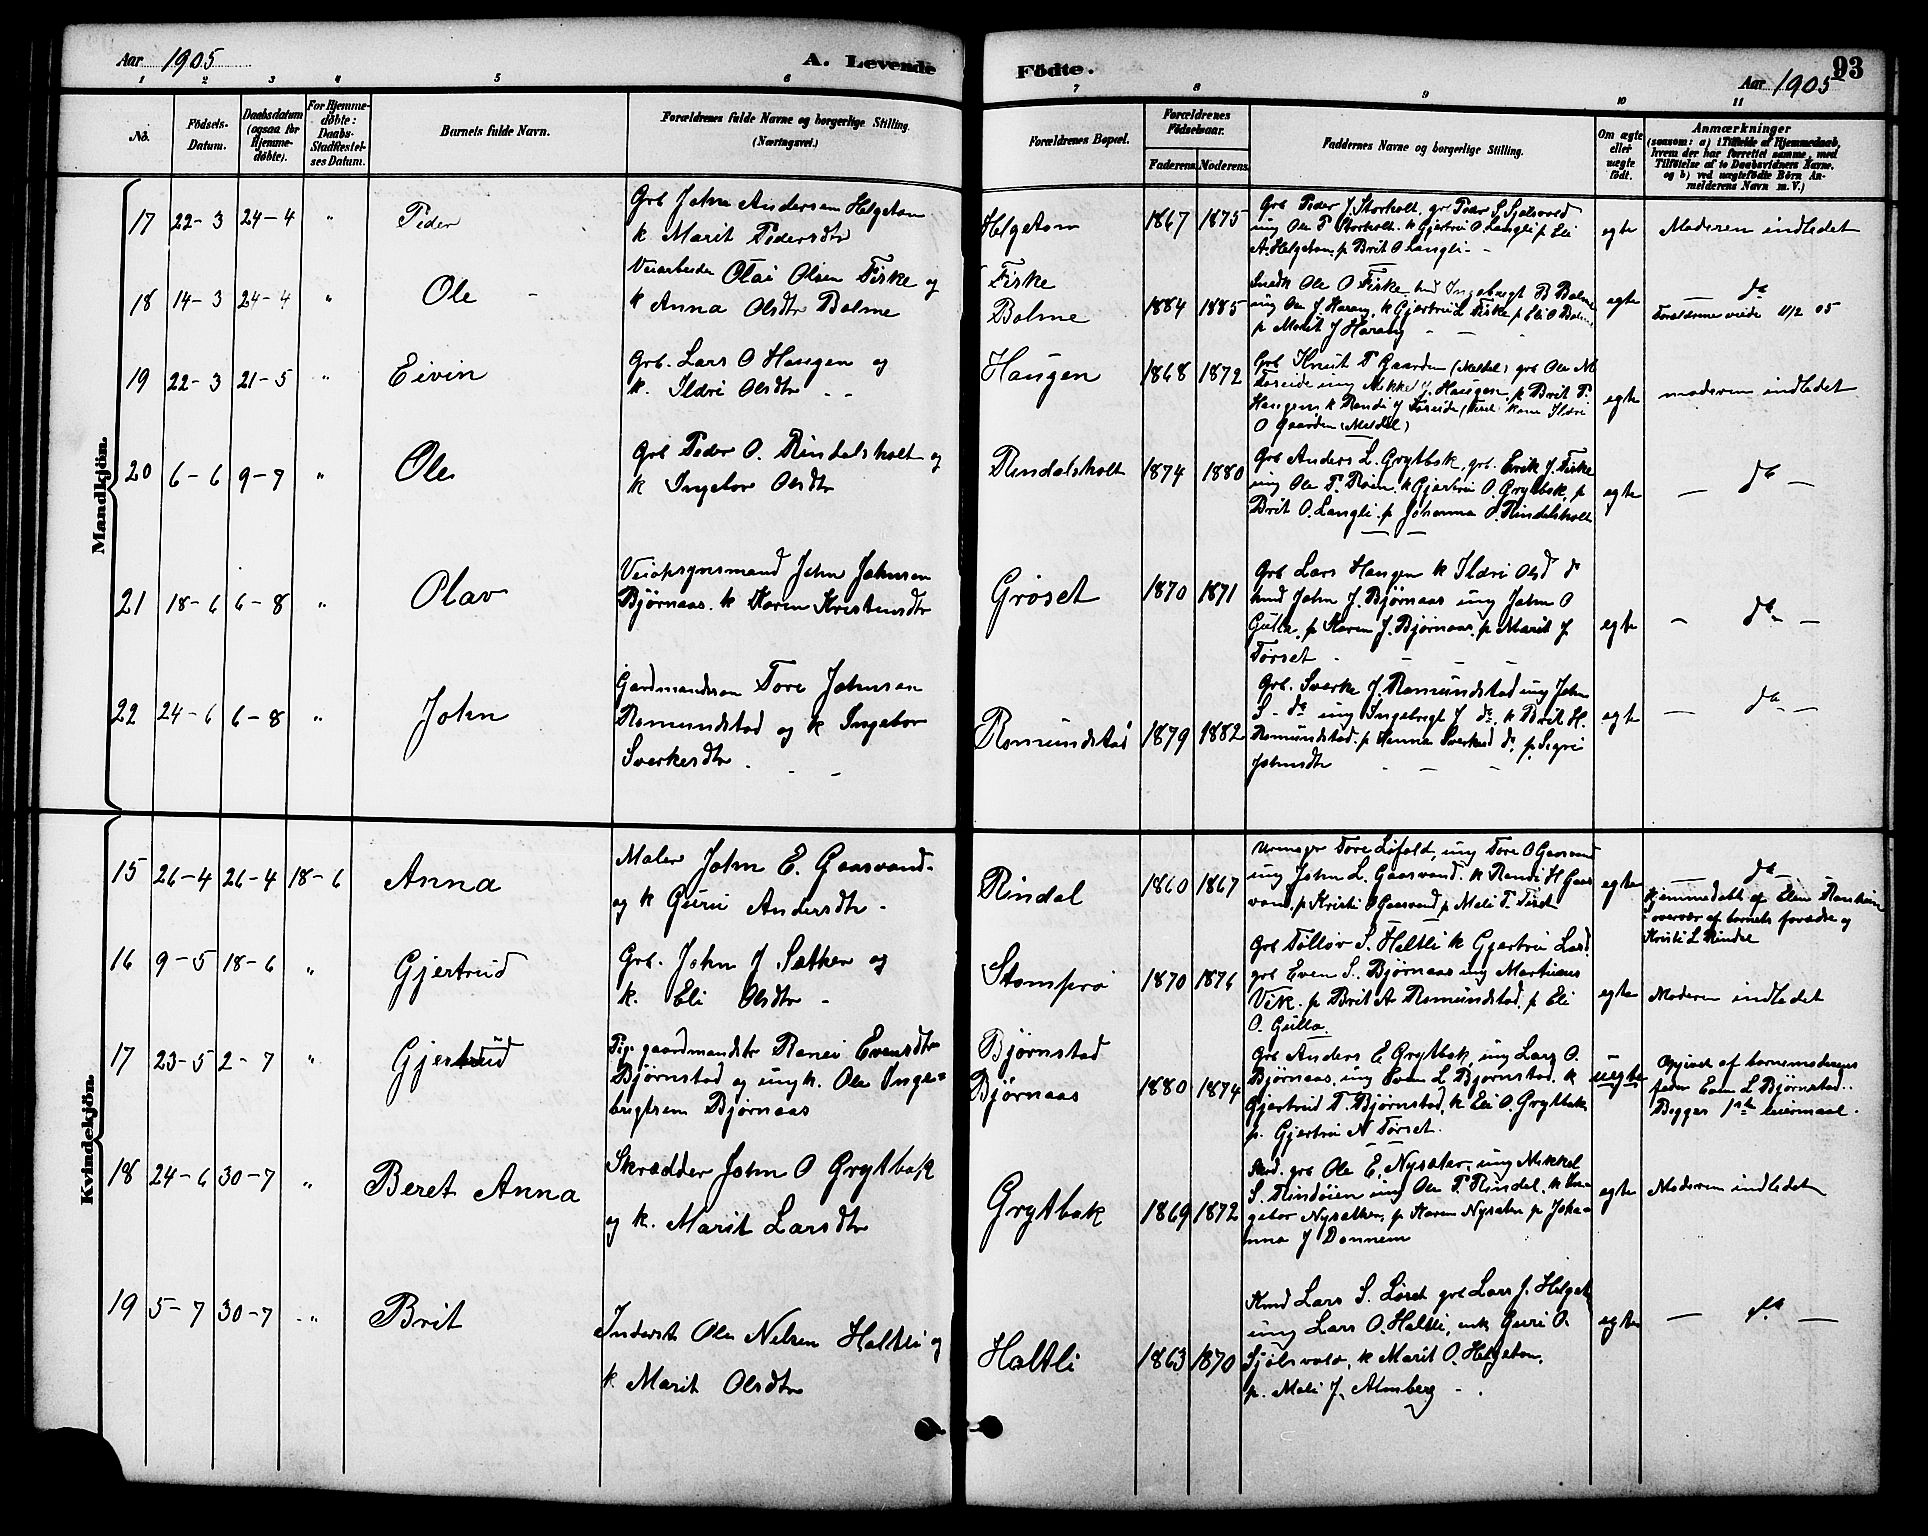 Aar 1905
A. Levende
Fødte.
93
Aar 1905
1 2 3 4 5 6 7 8 9 10 11
No.
Fødsels-Datum.
Daabsdatum (ogsaa for Hjemmedøbte).
For Hjemmedøbte: Daabs-Stadfæstelses Datum.
Barnets fulde Navn.
Forældrenes fulde Navne og borgerlige Stilling. (Næringsvei.)
Forældrenes Bopæl.
Forældrenes Fødselsaar.
Faderens. Moderens.
Faddernes Navne og borgerlige Stilling.
Om ægte eller uægte født.
Anmærkninger
(saasom: a) i Tilfælde af Hjemmedaab, hvem der har forrettet samme, med Tilføielse af to Daabsvidners Navne. og b) ved uægtefødte Børn Anmelderens Navn m. V.)
Mandkjøn.
17 22-3 24-4 " Peder
Grb John Andersen Helgetun
k Marit Pedersdtr
Helgetun 1867 1875
Grb Peder J. Storholt, gr Peder S Sjølsvold
ung Ole P Storholt. k Gjertru O Langli p Eli
A. Helgetun. p Brit O Langli -
egte Moderen indledet
18 14-3 24-4 " Ole
Veiarbeider Olai Olsen Fiske og
k Anna Olsdtr Bolme
Fiske
Bolme 1884 1885
Smedk Ole O Fiske hmd Ingebrigt B Bolme
ung Ole J Harang, k Gjertru L Fiske p Eli O Bolme
p Marit J Harang
egte - do -
Forældrene viede 11/2 05
19 22-3 21-5 " Eivin
Grb. Lars O Haugen og
k. Ildri Olsdtr - -
Haugen 1868 1872
Grb Knut T Gaarden (Meldal) grb Ole M
Foseide ung Mikkel J. Haugen, p Brit P.
Haugen k Randi J Foseide kone Ildri
O Gaarden (Meldal)
egte moderen indledet
20 6-6 9-7 " Ole
Grb Peder O. Rindalsholt og
k Ingebor Olsdtr
Rindalsholt 1874 1880
Grb Anders L. Grytbak, grb. Erik J. Fiske
ung Ole P. Røen. k Gjertru O. Grytbak, p
Brit O. Langli. p Johanna O. Rindalsholt
egte - do -
21 18-6 6-8 " Olav
Veiopsynsmand John Johnsen
Bjørnaas. k Karen Kristensdtr
Grøset 1870 1871
Grb Lars Haugen k Ildri Olsd do
hmd John J. Bjørnaas ung John O
Gulla, p Karen J. Bjørnaas, p Marit J
Tørset
egte - do -
22 24-6 6-8 " John
Gardmandssøn Tore Johnsen
Romundstad og k Ingebor
Sverkesdtr
Romundstad 1879 1882
Grb. Sverke J. Romundstad ung John
S - do ung Ingebrigt J do, k Brit H.
Romundstad. p Hanna Sverkesd do, p. Sigri
Johnsdtr
egte - do -
Kvindekjøn.
15 26-4 26-4 18-6 Anna
Maler John E. Gaasvand
og k Guru Andersdtr -
Rindal 1860 1867
Urmager Tore Løfald, ung Tore O Gaasvand
ung John L. Gaasvand. k Randi H Gaas
vand, p Kristi O Gaasvand p Mali T.
egte - do -
Hjemmedøbt af Elen Ranheim
i overvær af barnets forældre og
Kristi L Rindal
16 9-5 18-6 " Gjertrud
Grb. John J Sæther og
k. Eli Olsdtr -
Stomprø 1870 1876
Grb Tollov S. Haltli k Gjertru Larsd.
grb Even S. Bjørnaas ung Martinus
Vik. p Brit A. Romundstad, p Eli
O. Gulla.
egte Moderen indledet
17 23-5 2-7 " Gjertrud
Pige gaardmandsdtr Ranei Evensdtr
Bjørnstad og ungk. Ole Inge=
brigtsen Bjørnaas
Bjørnstad
Bjørnaas 1880 1874
Grb Anders E Grytbak, ung Lars O.
Bjørnaas, ung Sven L Bjørnstad. k
Gjertrud T. Bjørnstad, k Eli O. Grytbak
p. Gjertru N Tørset.
uegte Opgivet af barnemoderens
fader Even L Bjørnstad.
Begges 1ste leiermaal.
18 24-6 30-7 " Beret Anna
Skrædder John O Grytbak
og k. Marit Larsdtr
Grytbak 1869 1872
grb Ole E. Nysæter, ung Mikkel
S. Rindøien ung Ole P. Rindal, k In-
gebor Nysæther, p Karen Nysæter p Joha-
nna J Dønnem
egte Moderen indledet
19 5-7 30-7 " Brit
Inderst Ole Nilsen Haltli og
k. Marit Olsdtr
Haltli 1863 1870
Kmd Lars S. Løset grb Lars J. Helget.
ung Lars O. Haltli, enk Guri O.
Sjølsvold, k Marit O. Helgetun.
p. Mali J. Almberg -
egte - do -